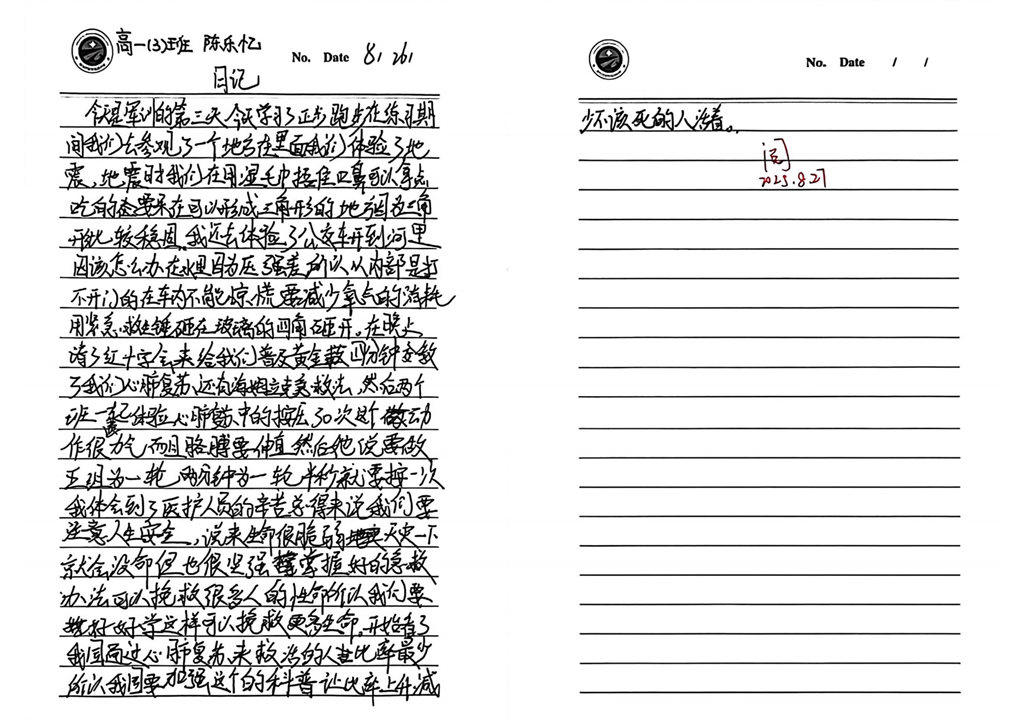 高一(3)班 陈乐忆
No. Date 8/26/
日记
今天是军训的第三天今天学习了正步跑步在练习期
间我们去参观了一个地方在里面我们体验了地
震,地震时我们在用湿毛巾捂住口鼻可以拿点
吃的还要呆在可以形成三角形的地方因为三角
形比较稳固。我还去体验了公交车开到河里
因该怎么办在水里因为压强差所以从内部是打
不开门的在车内不能惊慌要减少氧气的消耗
用紧急救生锤砸在玻璃的四角砸开。在晚上
请了红十字会来给我们普及黄金救四分钟还教
了我们心肺复苏还有海姆立克急救法,然后两个
班一起体验心肺复苏中的按压30次这个做动
作很力气而且胳膊要伸直然后他说要做
五组为一轮 两分钟为一轮半秒就要按一次
我体会到了医护人员的辛苦总得来说我们要
注意人生安全。说来生命很脆弱 天灾一下
就会没命但也很坚强 掌握好的急救
办法可以挽救很多人的性命所以我们要
好好学这样可以挽救更多生命。开始看了
我国通过心肺复苏来救活的人占比率最少
所以我国要加强这个的科普让比率上升减
No. Date / /
少不该死的人活着。
阅
2025.8.27